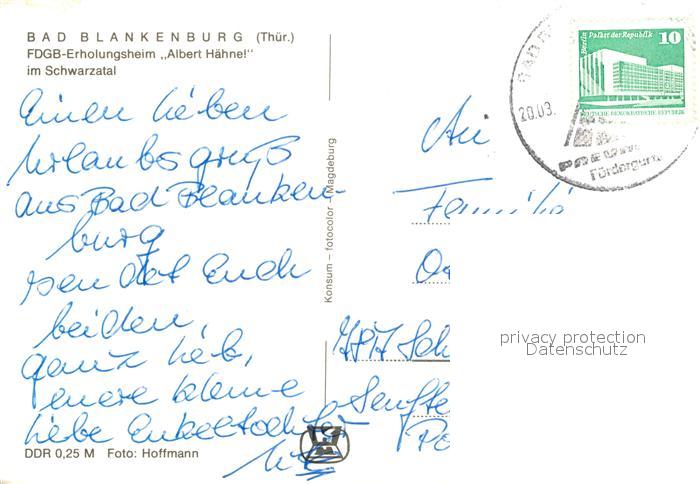 BAD BLANKENBURG (Thür.)
FDGB-Erholungsheim „Albert Hähnel“
im Schwarzatal
Einen lieben
Urlaubsgruß
aus Bad Blanken-
burg
sendet Euch
beiden,
ganz lieb,
euere kleine
liebe Enkeltochter
DDR 0,25 M Foto: Hoffmann
Konsum – fotocolor – Magdeburg
Berlin Palast der Republik
10
DEUTSCHE DEMOKRATISCHE REPUBLIK
BAD
20.03.
An
Familie
privacy protection
Datenschutz